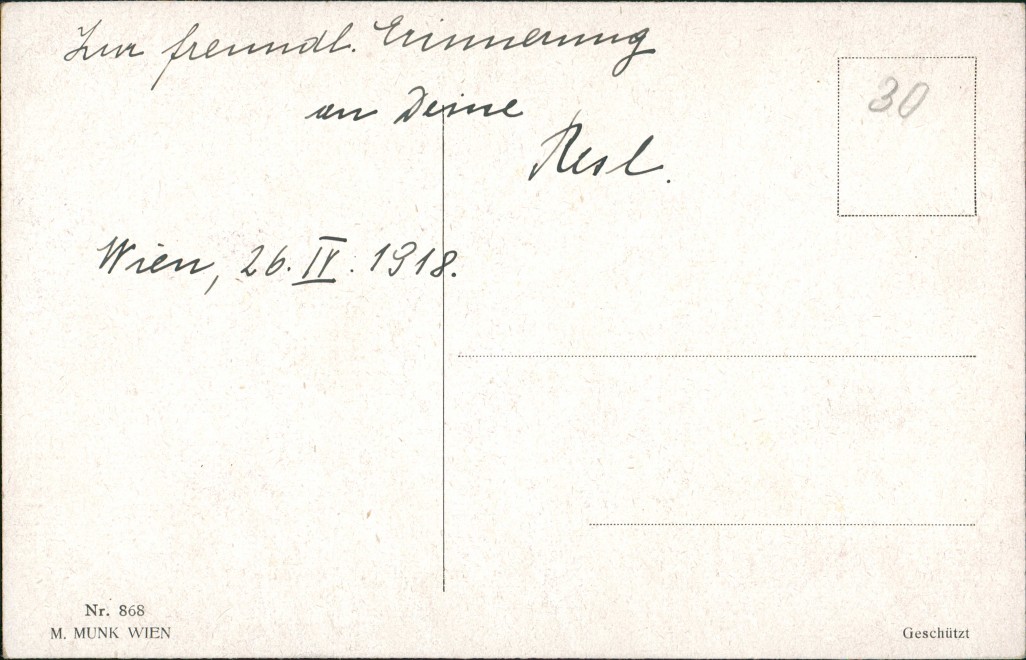 Zur freundl. Erinnerung
an Deine
Resl.
30
Wien, 26. IV. 1918.
Nr. 868
M. MUNK WIEN
Geschützt